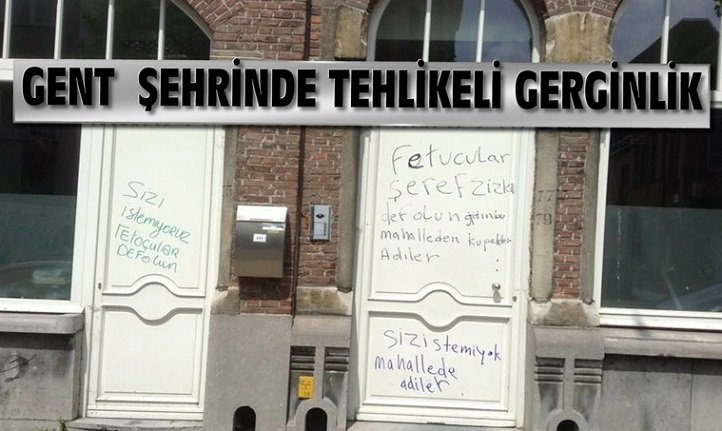 GENT ŞEHRİNDE TEHLİKELİ GERGİNLİK
Sizi
istemiyoruz
fetoçular
DEFOLUN
fetucular
Şerefzizler
defolun gidin bu
mahalleden kupekler
Adiler
77
79
Sizi istemiyok
mahallede
adiler